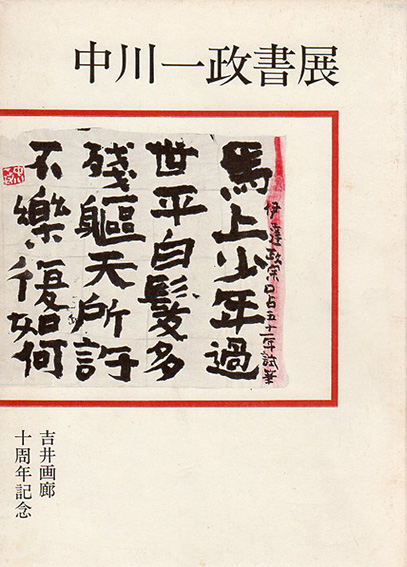 中川一政書展
伊達政宗口占五十一年試筆
馬上少年過
世平白髪多
殘軀天所許
不樂復如何
吉井画廊
十周年記念